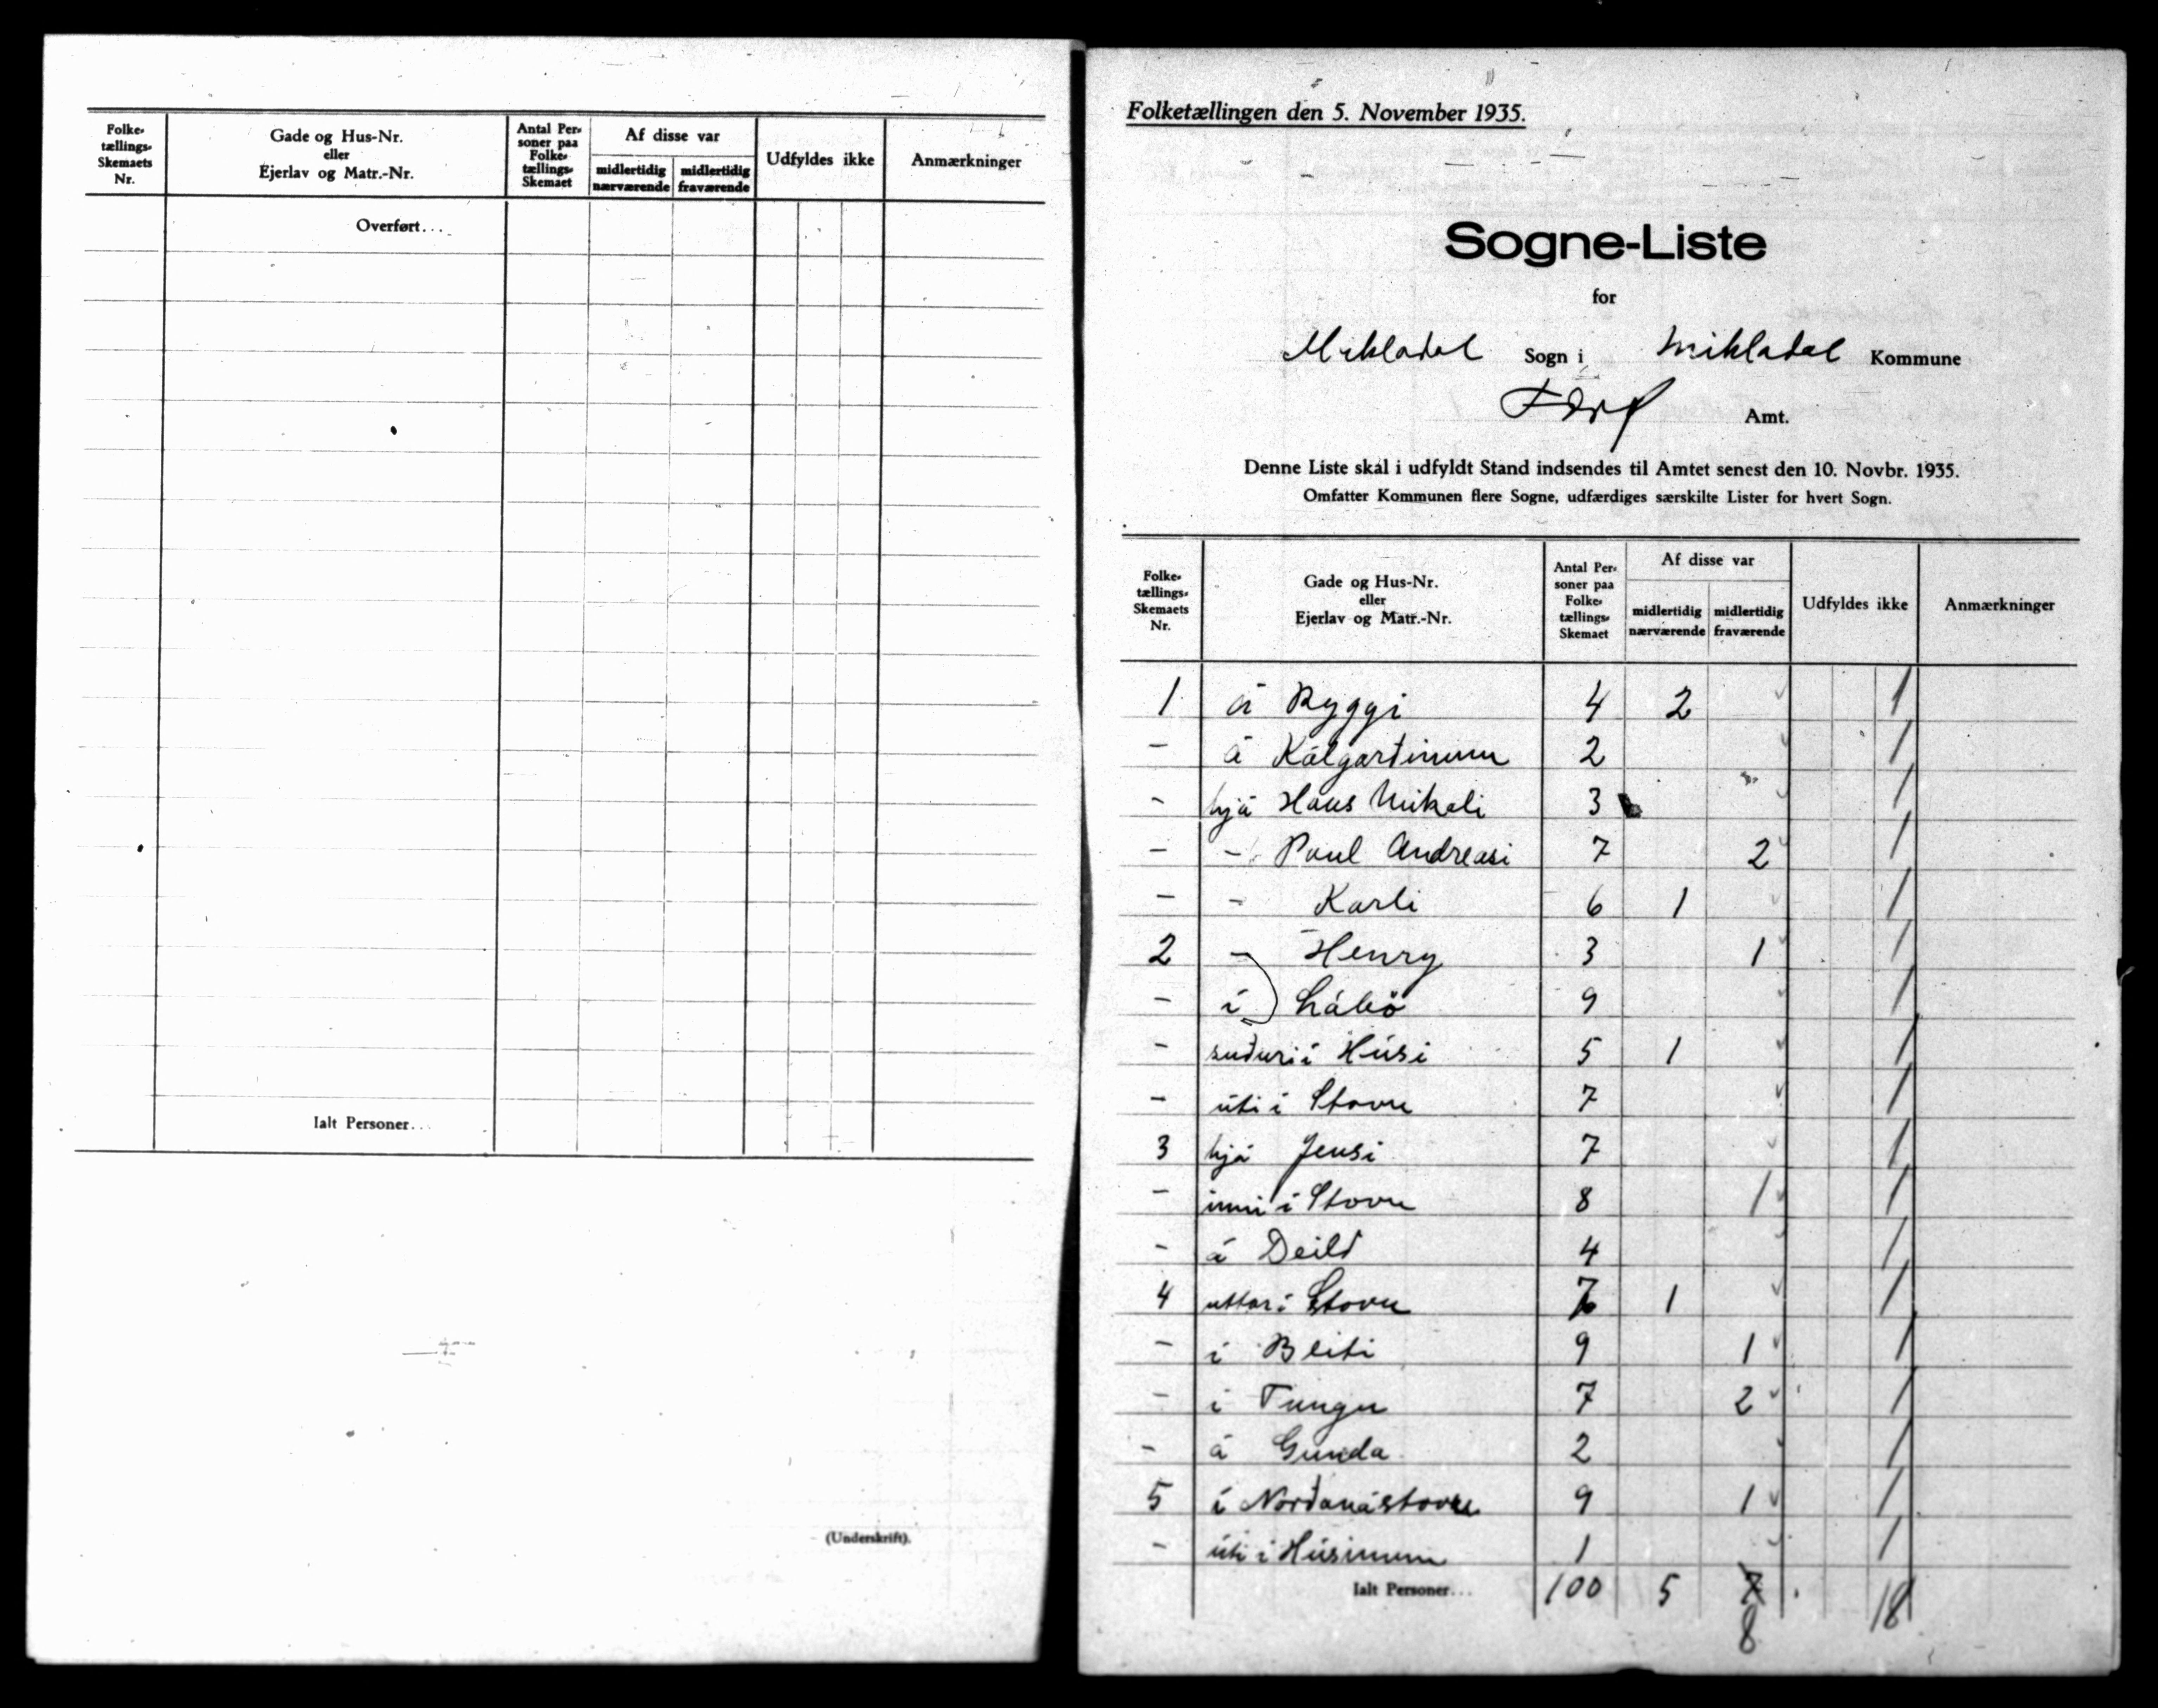 Folketællings-Skemaets Nr. | Gade og Hus-Nr. eller Ejerlav og Matr.-Nr. | Antal Personer paa Folketællings-Skemaet | Af disse var midlertidig nærværende | midlertidig fraværende | Udfyldes ikke | Anmærkninger
Overført...
Ialt Personer...
(Underskrift).
Folketællingen den 5. November 1935.
Sogne-Liste
for
Mikladal Sogn i Mikladal Kommune
Amt.
Denne Liste skal i udfyldt Stand indsendes til Amtet senest den 10. Novbr. 1935.
Omfatter Kommunen flere Sogne, udfærdiges særskilte Lister for hvert Sogn.
Folketællings-Skemaets Nr. | Gade og Hus-Nr. eller Ejerlav og Matr.-Nr. | Antal Personer paa Folketællings-Skemaet | Af disse var midlertidig nærværende | midlertidig fraværende | Udfyldes ikke | Anmærkninger
1 á Ryggi 4 2 1
- á Kálgarðinum 2 1
- hjá Hans Mikali 3 1
- - Poul Andreasi 7 2 1
- - Karli 6 1 1
2 - Henry 3 1 1
- í 9 1
- suðuri í Húsi 5 1 1
- úti í Stovu 7 1
3 hjá Jensi 7 1
- inni í Stovu 8 1 1
- á Deild 4 1
4 uttar í Stovu 7 1 1
- í Bleiti 9 1 1
- í Tungu 7 2 1
- á Gunda 2 1
5 í Norðanástovu 9 1 1
- úti í Húsinum 1 1
Ialt Personer... 100 5 7 18
8